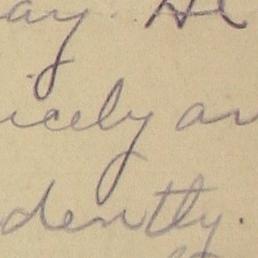 ay. He
icely an
dently.